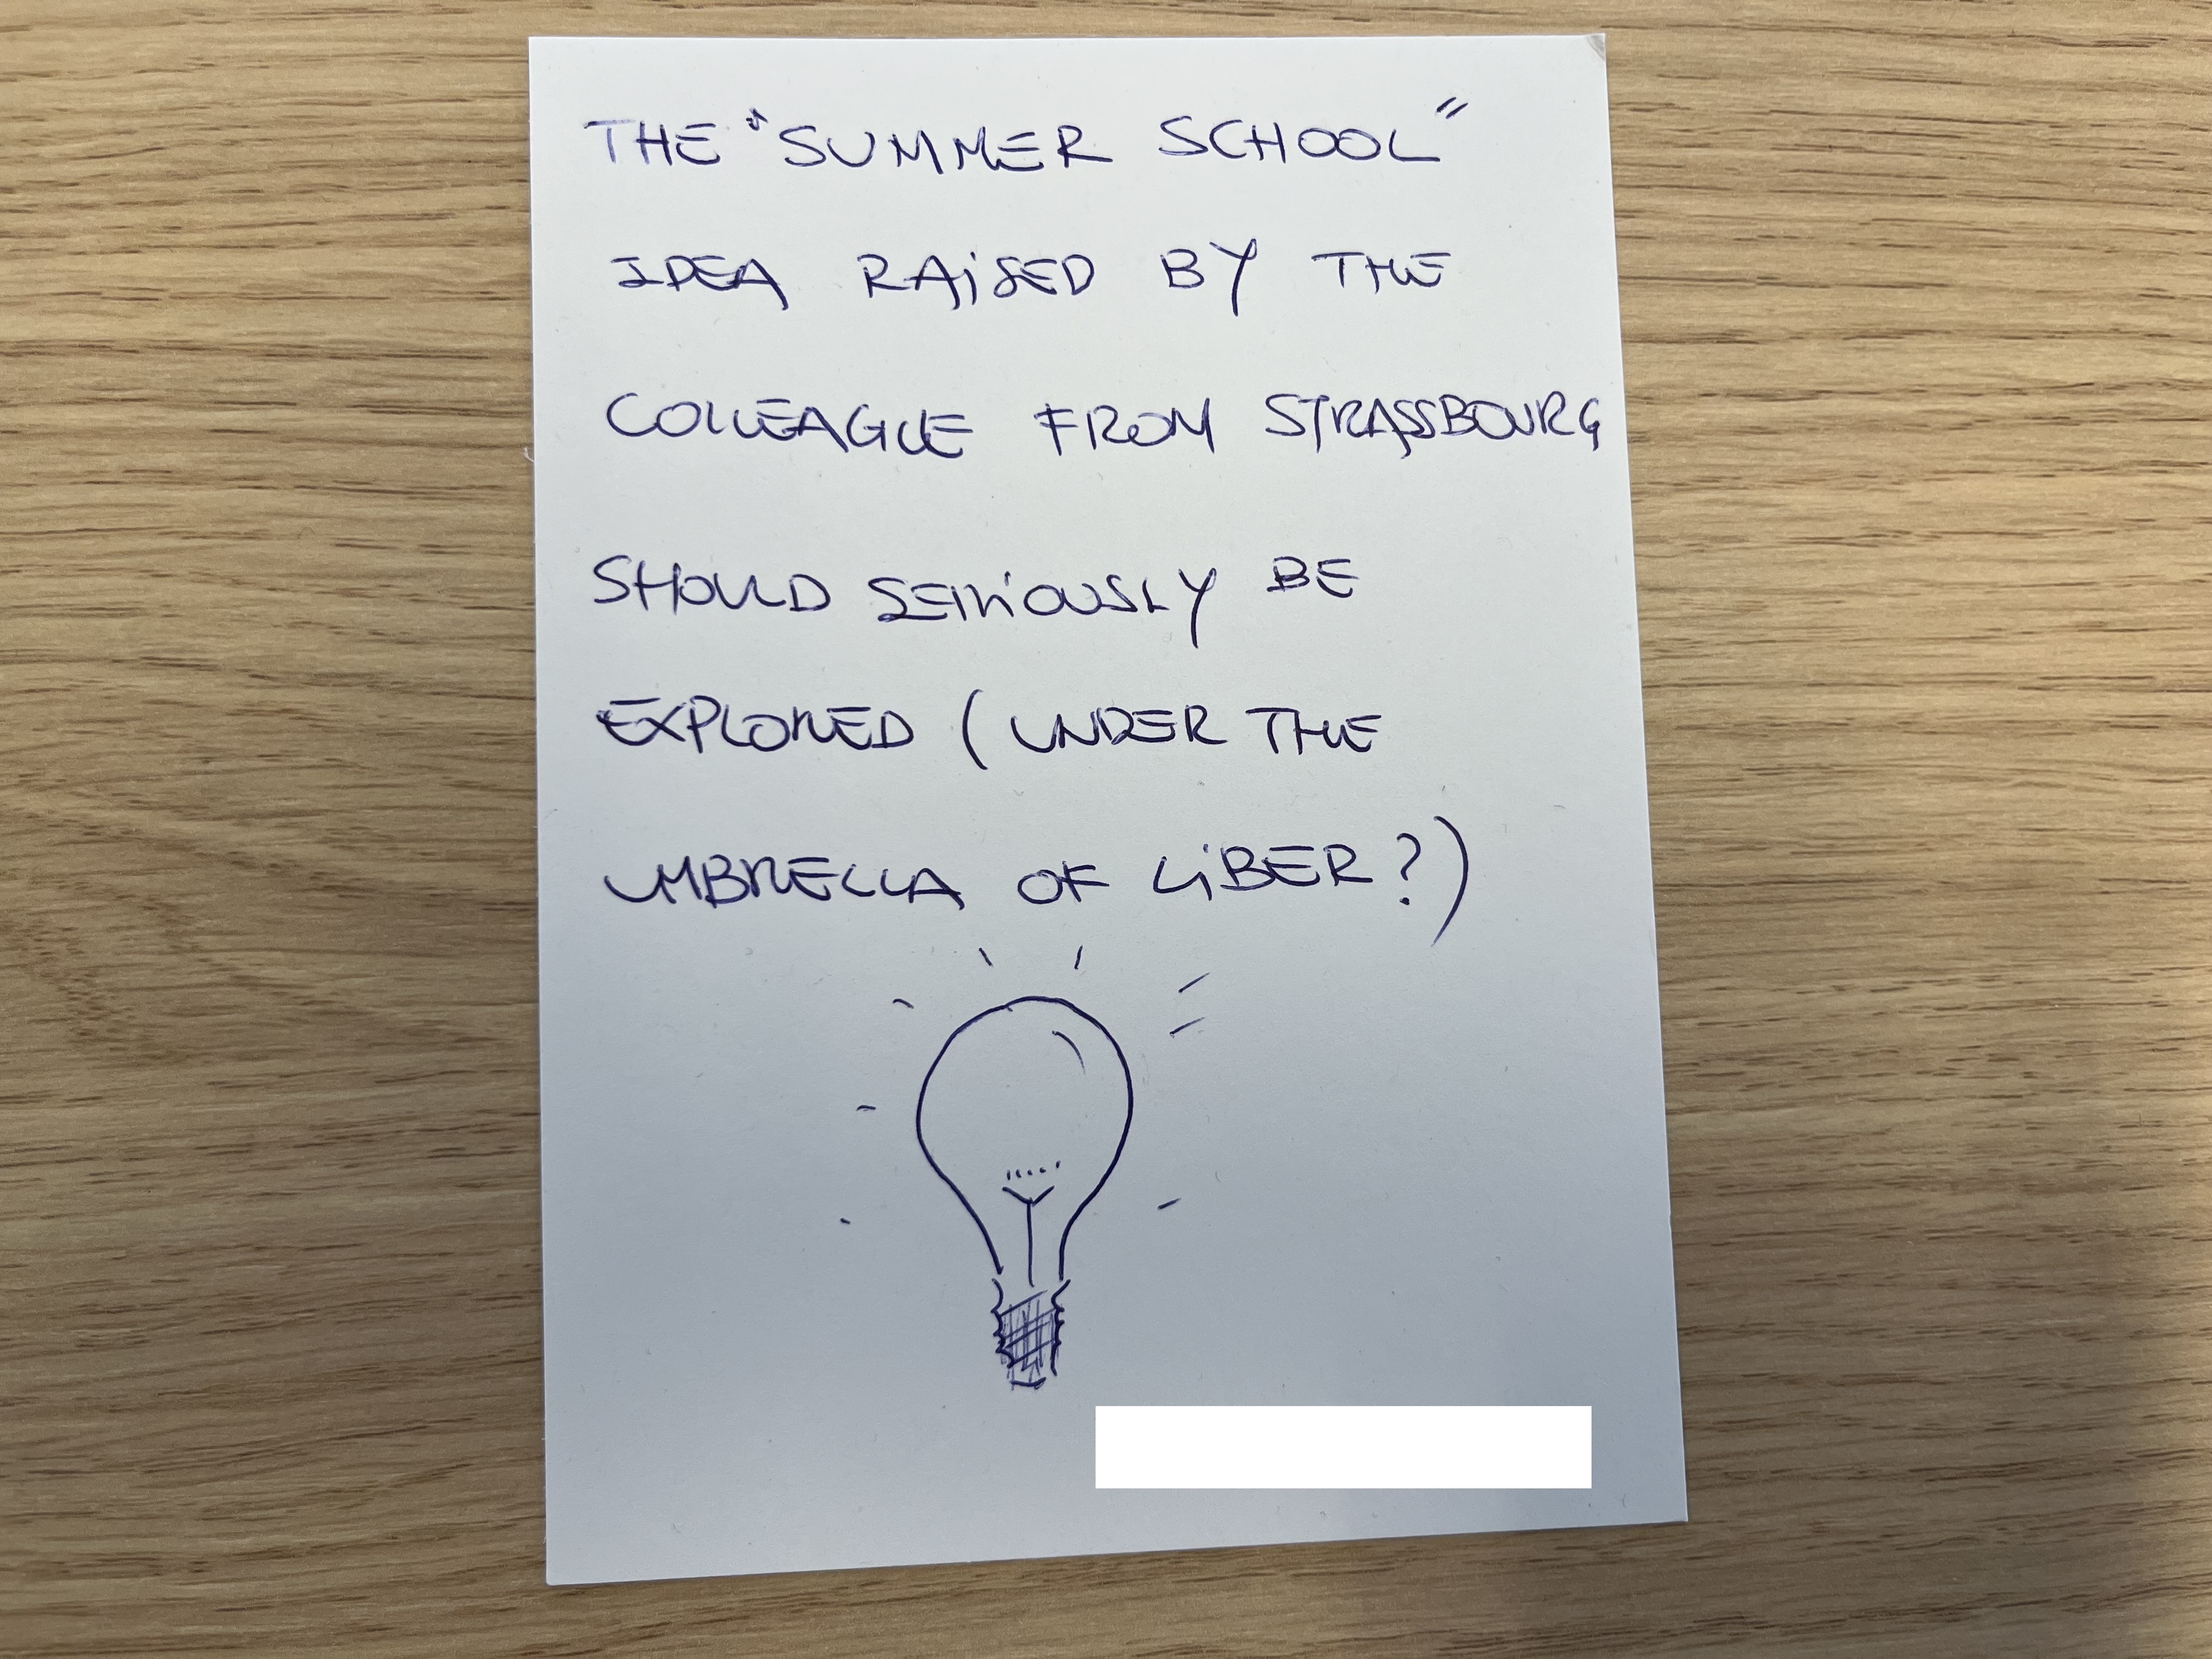 THE "SUMMER SCHOOL"
IDEA RAiSED BY THE
COLLEAGUE FROM STRASSBOURG
SHOULD SERiOUSLY BE
EXPLORED (UNDER THE
UMBRELLA OF LiBER?)